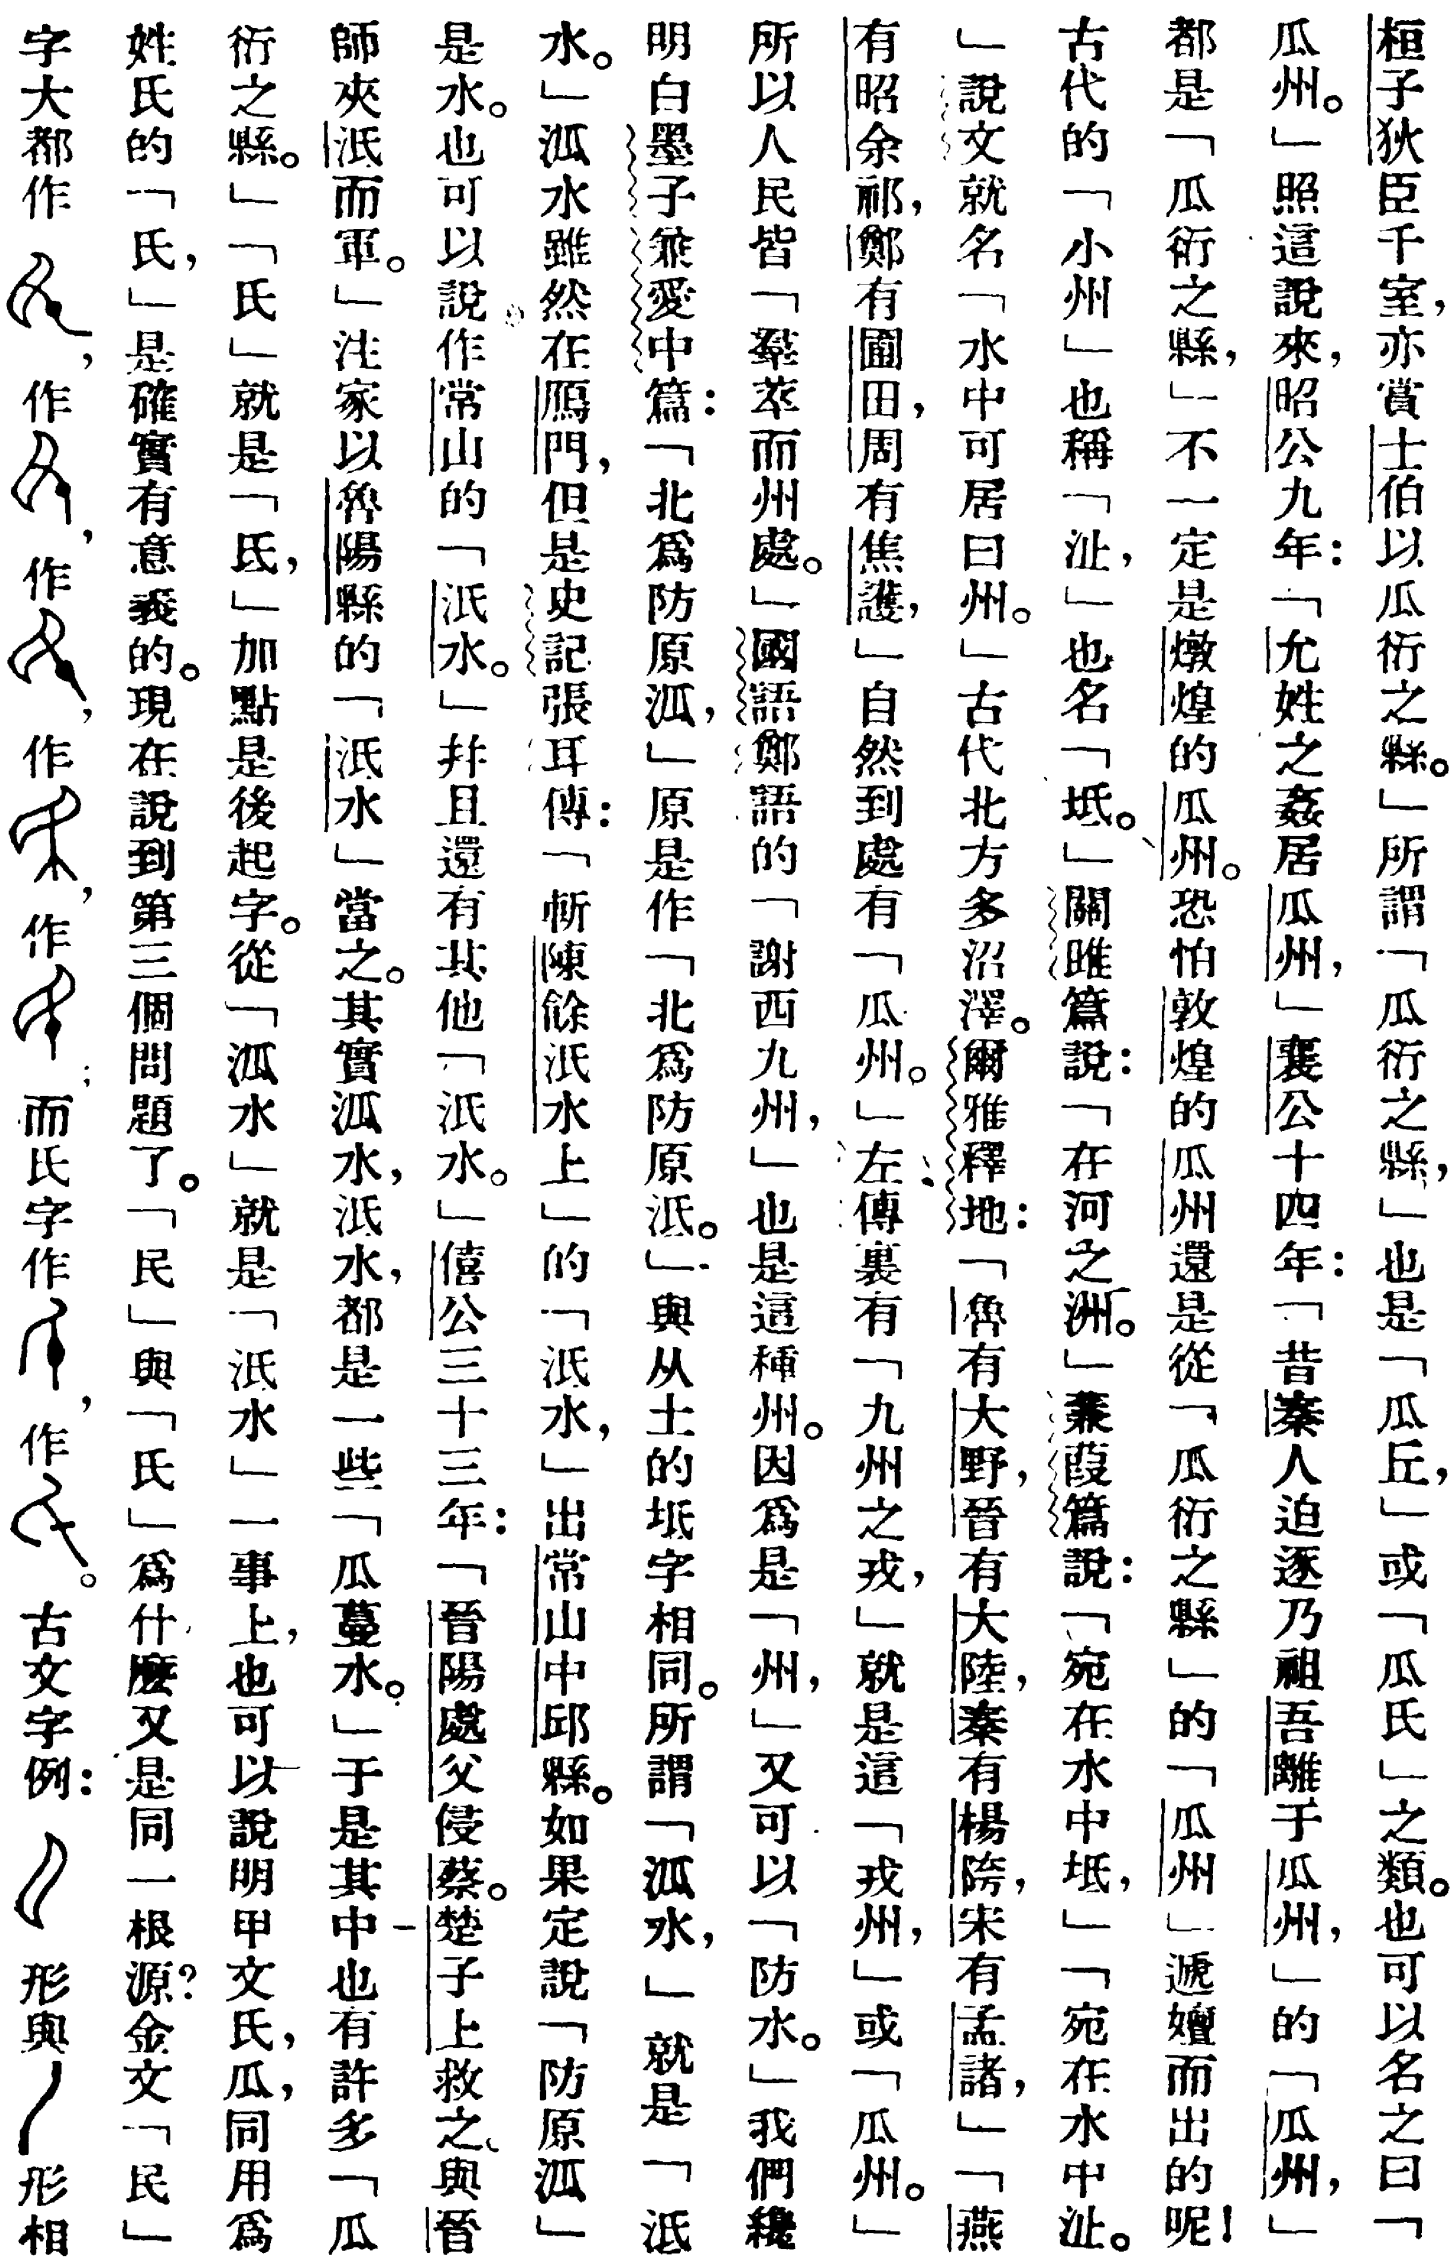 桓子狄臣千室，亦賞士伯以瓜衍之縣。」所謂「瓜衍之縣，」也是「瓜丘，」或「瓜氏」之類。也可以名之曰「
瓜州。」照這說來，昭公九年：「允姓之姦居瓜州，」襄公十四年：「昔秦人迫逐乃祖吾離于瓜州，」的「瓜州，」
都是「瓜衍之縣，」不一定是燉煌的瓜州。恐怕敦煌的瓜州還是從「瓜衍之縣」的「瓜州」遞嬗而出的呢！
古代的「小州」也稱「沚，」也名「坻。」關雎篇說：「在河之洲。」蒹葭篇說：「宛在水中坻，」「宛在水中沚。
」說文就名「水中可居曰州。」古代北方多沼澤。爾雅釋地：「魯有大野，晉有大陸，秦有楊陓，宋有孟諸，」「燕
有昭余祁，鄭有圃田，周有焦護，」自然到處有「瓜州。」左傳裏有「九州之戎，」就是這「戎州，」或「瓜州。」
所以人民皆「羣萃而州處。」國語鄭語的「謝西九州，」也是這種州。因為是「州，」又可以「防水。」我們纔
明白墨子兼愛中篇：「北為防原泒，」原是作「北為防原泜。」與从土的坻字相同。所謂「泒水，」就是「泜
水。」泒水雖然在鴈門，但是史記張耳傳：「斬陳餘泜水上」的「泜水，」出常山中邱縣。如果定說「防原泒」
是水。也可以說作常山的「泜水。」并且還有其他「泜水。」僖公三十三年：「晉陽處父侵蔡。楚子上救之、與晉
師夾泜而軍。」注家以魯陽縣的「泜水」當之。其實泒水，泜水，都是一些「瓜蔓水。」于是其中也有許多「瓜
衍之縣。」「氏」就是「氐，」加點是後起字。從「泒水」就是「泜水」一事上，也可以說明甲文氏，瓜，同用為
姓氏的「氏，」是確實有意義的。現在說到第三個問題了。「民」與「氏」為什麼又是同一根源？金文「民」
字大都作，作，作，作，作；而氏字作，作。古文字例：形與形相